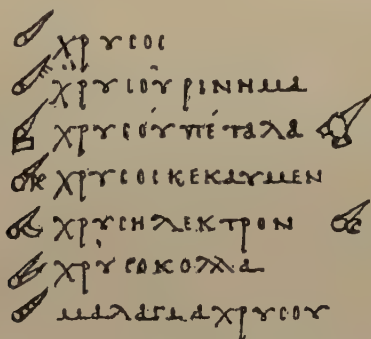 χρυσοσ
χρυσού ρινημα
χρυσού πέταλα
χρυσοσ κεκαυμεν
χρυσηλεκτρον
χρυσοκολλα
μαλαγμα χρυσου